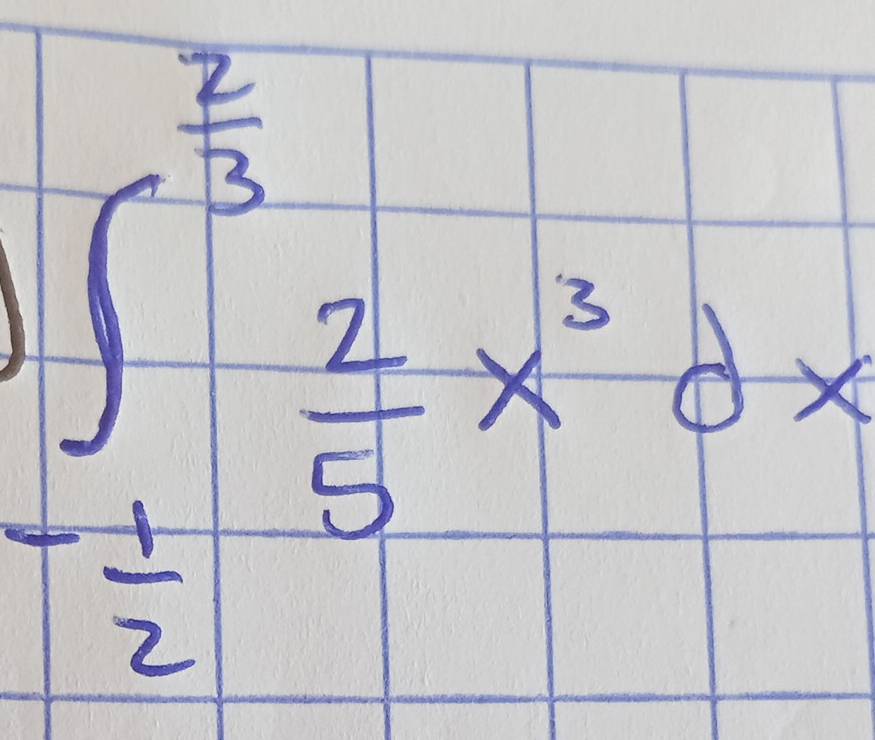 ∫_{-\frac{1}{2}}^{\frac{2}{3}} \frac{2}{5} x^3 dx